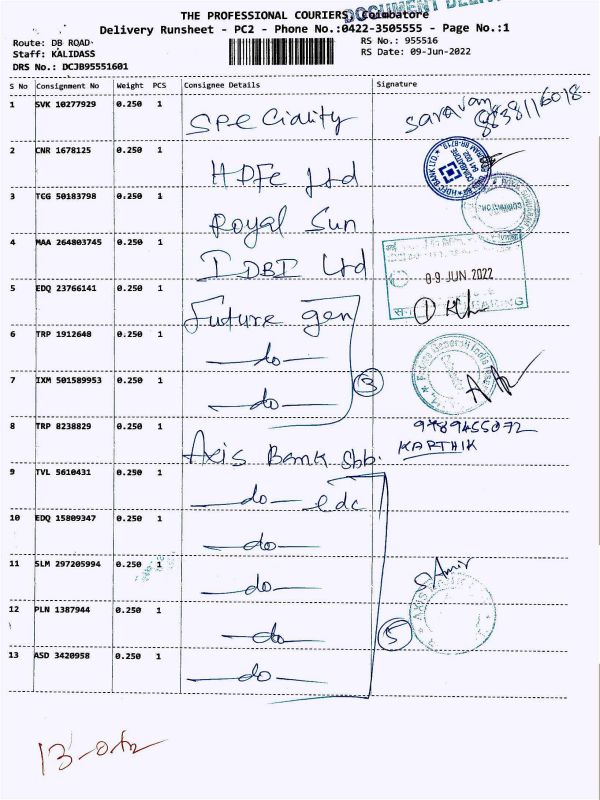 DOCUMENT DELIV
THE PROFESSIONAL COURIERS, Coimbatore
Delivery Runsheet - PC2 - Phone No.:0422-3505555 - Page No.:1
Route: DB ROAD RS No.: 955516
Staff: KALIDASS RS Date: 09-Jun-2022
DRS No.: DCJB95551601
S No Consignment No Weight PCS Consignee Details Signature
1 SVK 10277929 0.250 1 Speciality Saravan 9838116018
2 CNR 1678125 0.250 1 HDFC Ltd
HDFC BANK LTD. COIMBATORE 641 002
3 TCG 50183798 0.250 1 Royal Sun
4 MAA 264803745 0.250 1 IDBI Ltd
09 JUN 2022
5 EDQ 23766141 0.250 1 Future gen
6 TRP 1912648 0.250 1 -do-
Future Generali India
7 IXM 501589953 0.250 1 -do- 3
8 TRP 8238829 0.250 1 Axis Bank Sbb. 9789455072
KARTHIK
9 TVL 5610431 0.250 1 -do- edc
10 EDQ 15809347 0.250 1 -do-
11 SLM 297205994 0.250 1 -do- S Amir
12 PLN 1387944 0.250 1 -do- 5
AXIS
13 ASD 3420958 0.250 1 -do-